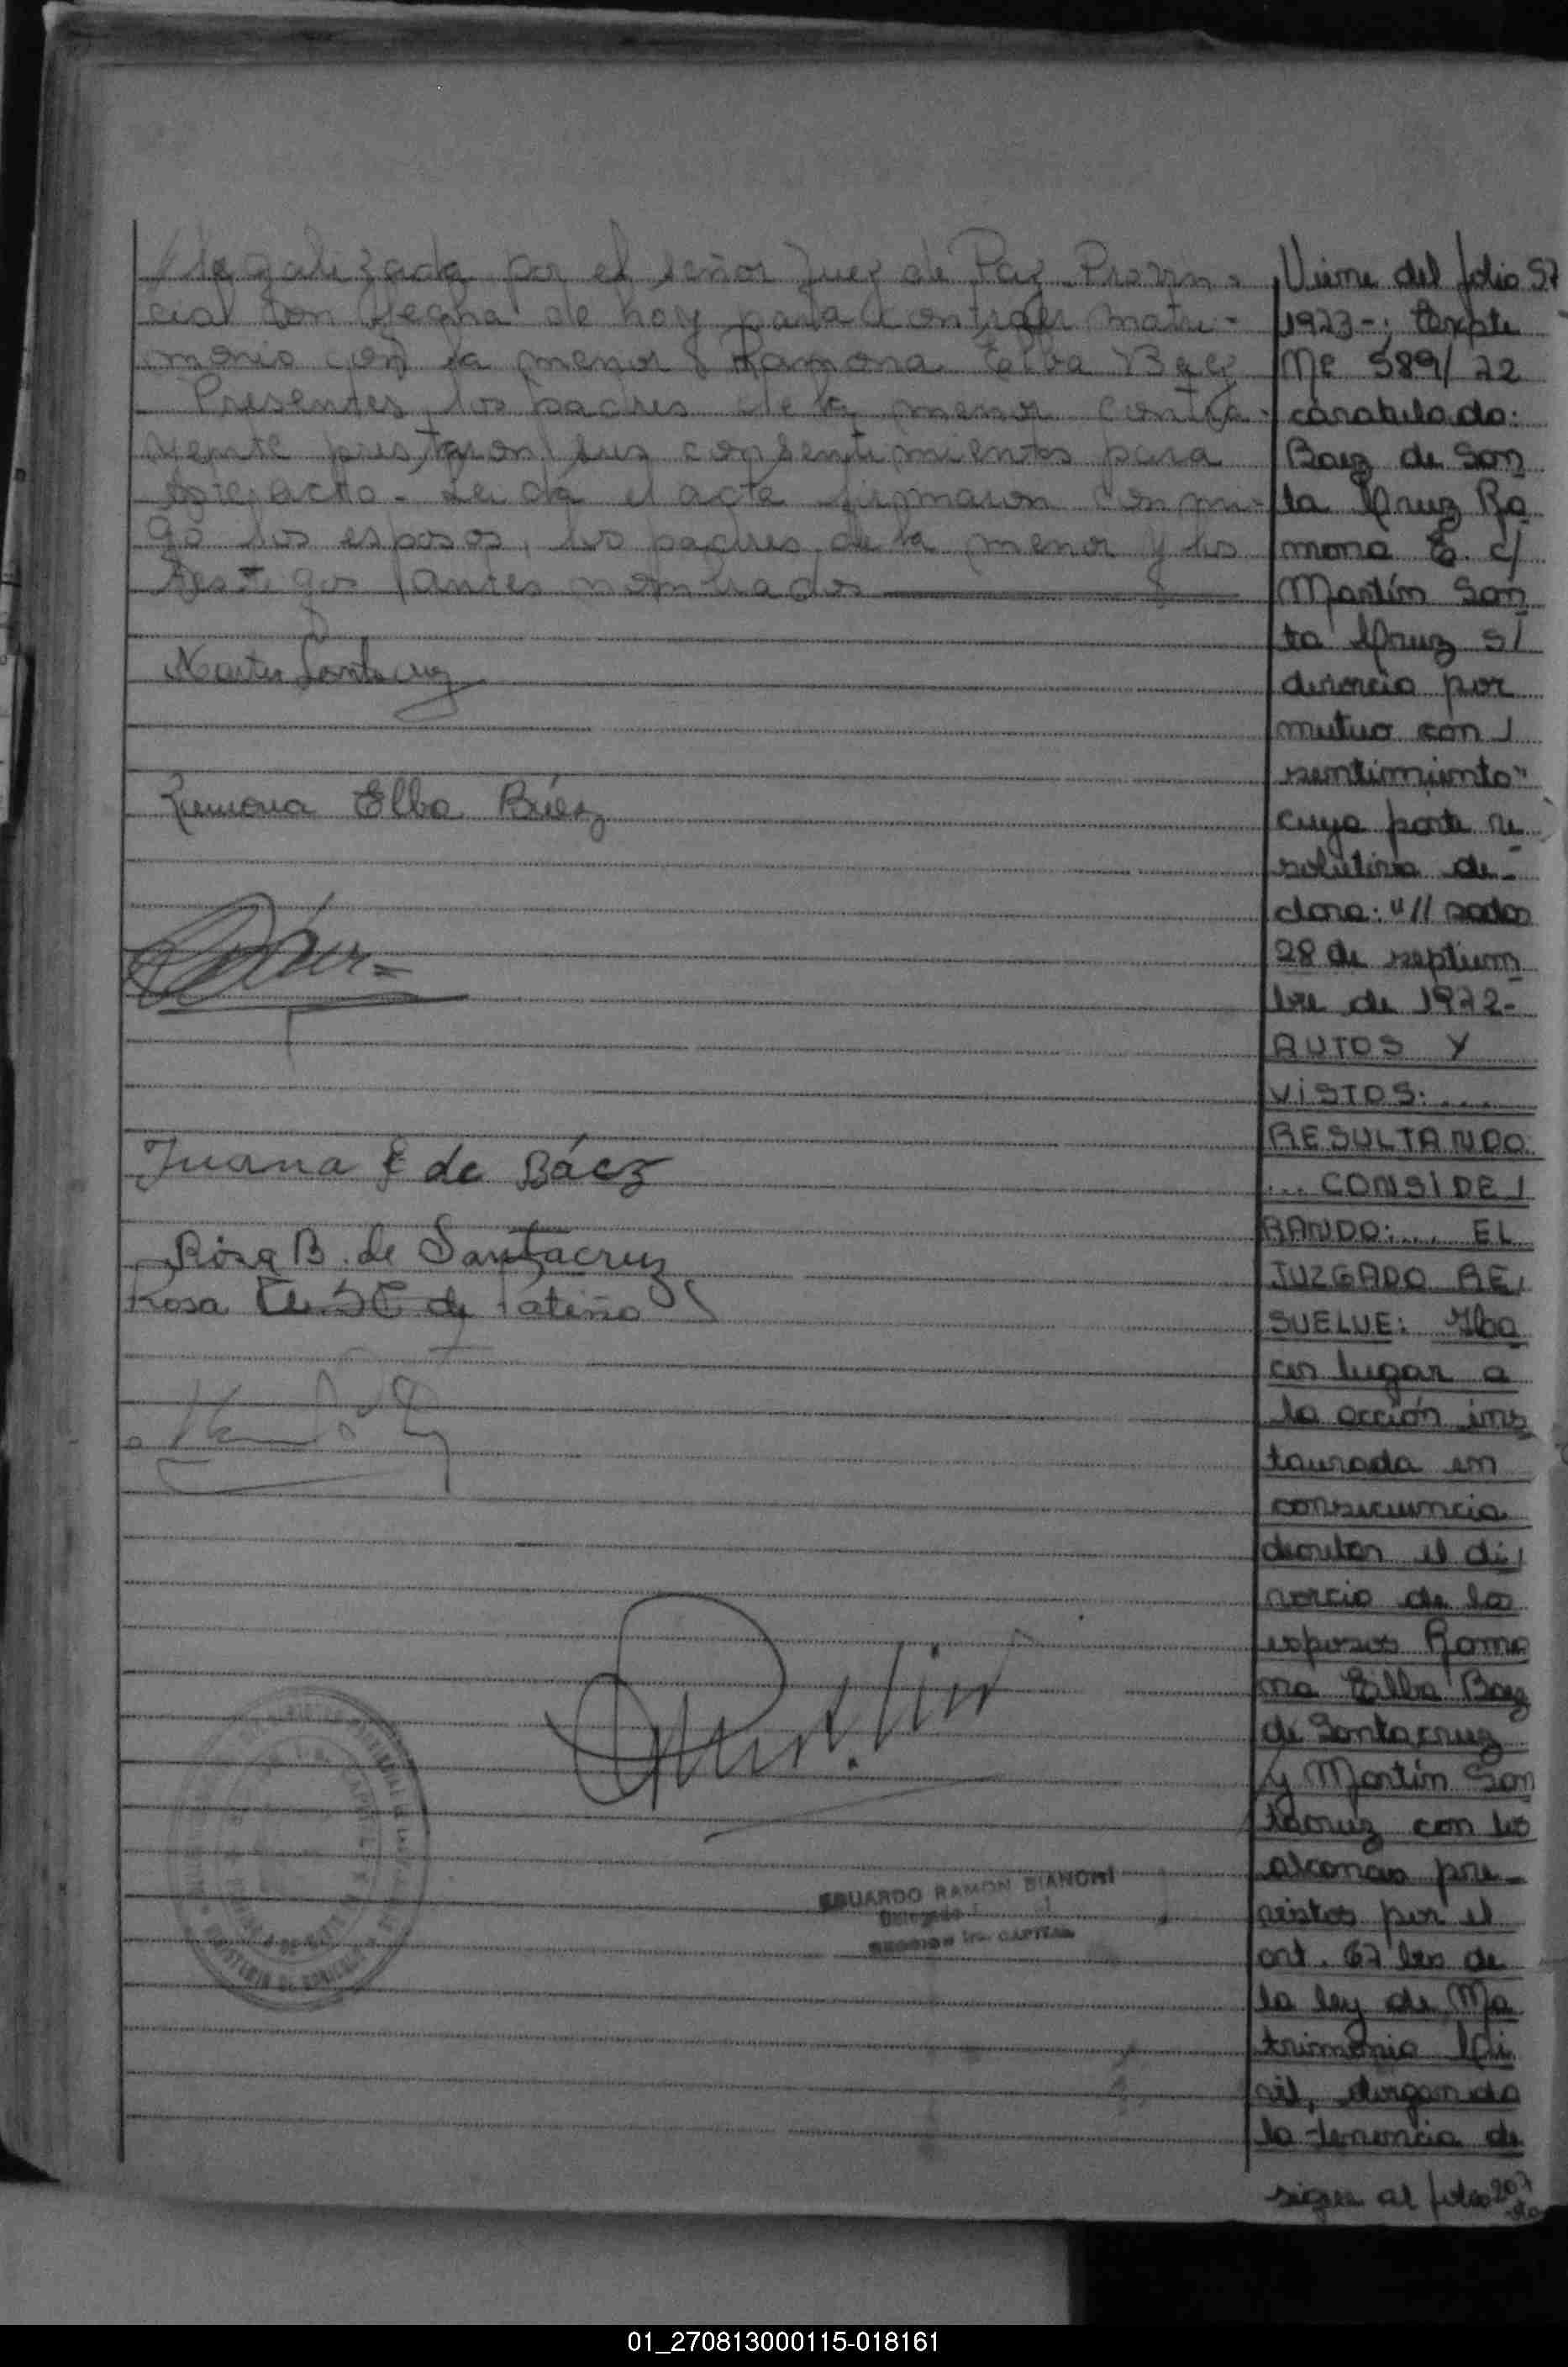 legalizada por el señor Juez de Paz Provin-
cial con fecha de hoy para contraer matri-
monio con la menor Ramona Elba Baez
Presentes los padres de la menor contra-
yente prestaron sus consentimientos para
este acto. Leida el acta firmaron conmi-
go los esposos, los padres de la menor y los
testigos antes nombrados
Martin Santacruz
Ramona Elba Báez
Juana E de Báez
Rosa B. de Santacruz
Rosa de Patiño
EDUARDO RAMON BIANCHI
Delegado
SECCION 1ra. CAPITAL
Viene del folio 57
1973-; Expte
Nº 589/72
caratulado:
Baez de San
ta Cruz Ra
mona E. c/
Martín San
ta Cruz s/
divorcio por
mutuo con/
sentimiento"
cuya parte re
solutiva de-
clara: "//sadas
28 de septiem
bre de 1972-
AUTOS Y
VISTOS:...
RESULTANDO
... CONSIDE/
RANDO:.... EL
JUZGADO RE/
SUELVE: Ha
cer lugar a
la acción ins
taurada en
consecuencia
decretar el di/
vorcio de los
esposos Ramo
na Elba Baez
de Santacruz
y Martín San
tacruz con los
alcances pre-
vistos por el
art. 67 bis de
la ley de Ma
trimonio Ci
vil, otorgando
la tenencia de
sigue al folio 207
01_270813000115-018161